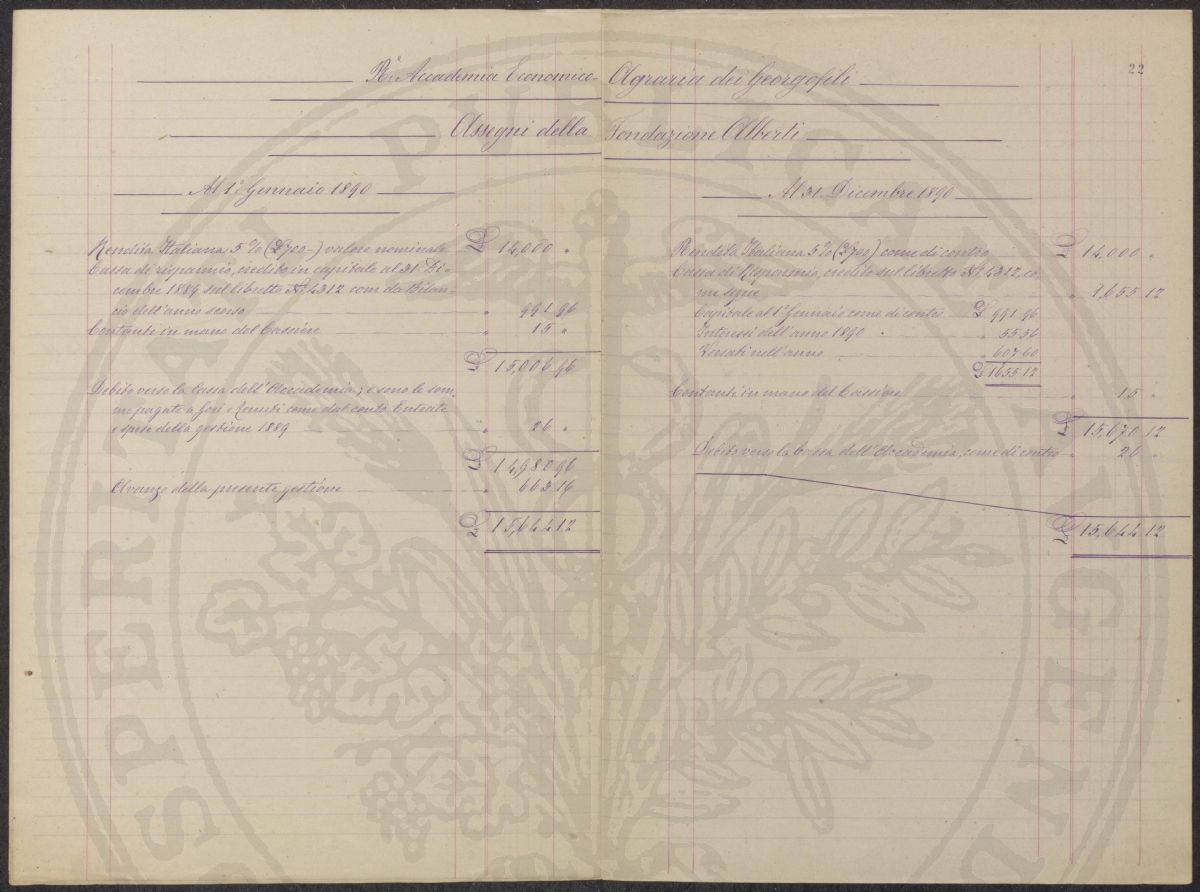 22
Rª Accademia Economico-Agraria dei Georgofili
Assegni della Fondazione Alberti
Al 1º Gennaio 1890
Rendita Italiana 5% (£ 700-) valore nominale £ 14,000 "
Cassa di risparmio, credito in capitale al 31 Di-
cembre 1889 sul libretto Nº 4312 com da Bilan-
cio dell'anno scorso " 991 96
Contante in mano del Cassiere " 15 "
£ 15,006 96
Debito verso la Cassa dell'Accademia; e sono le som-
me pagate a come dal conto Entrate
e spese della gestione 1889 " 26 "
£ 14,980 96
Avanzo della presente gestione " 663 16
£ 15,644 12
Al 31 Dicembre 1890
Rendita Italiana 5% (£ 700) come di contro £ 14,000 "
Cassa di Risparmio, credito sul libretto Nº 4312, co-
me segue " 1,655 12
Capitale al 1º Gennaio come di contro £ 991 96
Interessi dell'anno 1890 " 55 56
Versati nell'anno " 607 60
£ 1655 12
Contanti in mano del Cassiere " 15 "
£ 15,670 12
Debito verso la Cassa dell'Accademia, come di contro " 26 "
£ 15,644 12
SPERITATI PVBLICAE AVGENDAE